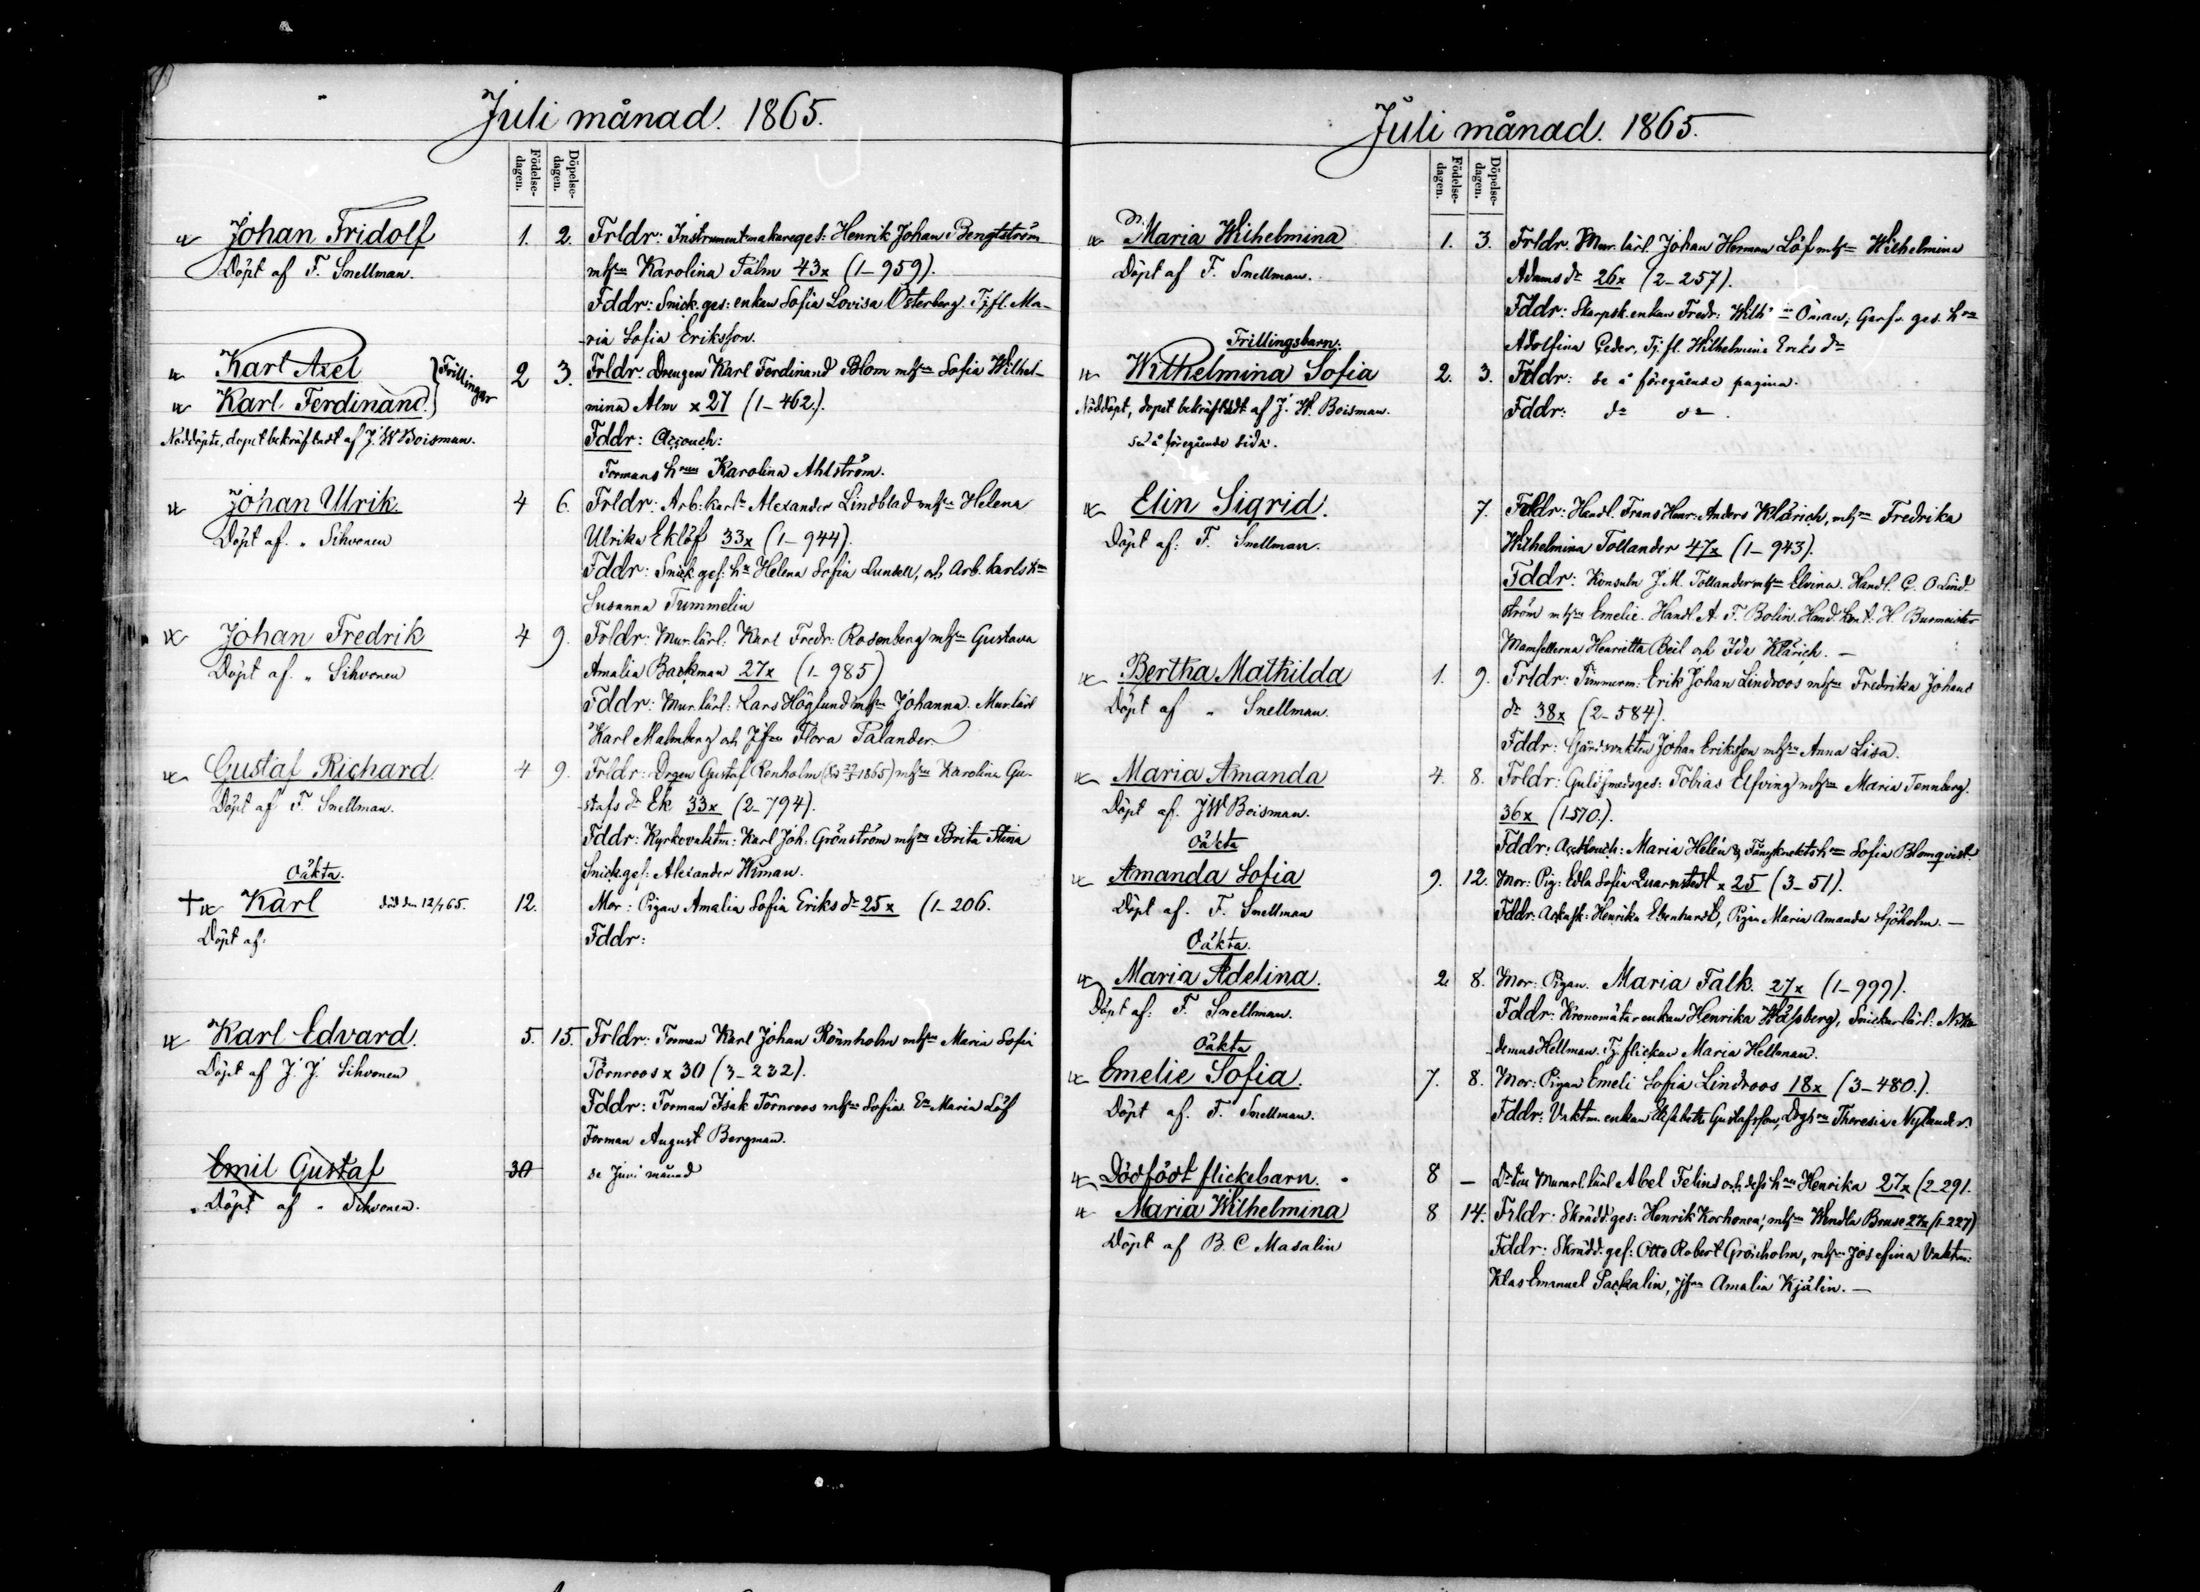 Juli månad. 1865.
Födelse-dagen.
Döpelse-dagen.
Johan Fridolf 1. 2. Frldr: Instrumentmakareges: Henrik Johan Bengtström
Döpt af F. Snellman. mhru Karolina Falm 43x (1-959).
Fddr: Snick. ges: enkan Sofia Lovisa Österberg. Tj.fl. Ma-
ria Sofia Eriksson.
Karl Axel 2 3. Frldr: Drengen Karl Ferdinand Blom mhru Sofia Wilhel-
Karl Ferdinand. } Trillingar mina Alm x 27 (1-462.).
Nöddöpte, dopet bekräftadt af J. W Boisman. Fddr: Accouch:
Formans hrun Karolina Ahlström.
Johan Ulrik 4 6. Frldr: Arb: karln Alexander Lindblad mhru Helena
Döpt af. " Sihvonen Ulrika Eklöf 33x (1-944).
Fddr: Snick ges: hu Helena Sofia Lundell, och Arb. karls hu
Susanna Tummelin
Johan Fredrik 4 9. Frldr: Mur.lärl: Karl Fredr: Rosenberg mhru Gustava
Döpt af. " Sihvonen Amalia Backman 27x (1-985)
Fddr: Mur.lärl: Lars Höglund mhru Johanna. Mur.lärl
Karl Malmberg och Jfru Flora Palander
Gustaf Richard. 4 9. Frldr: Drgen Gustaf Renholm 1865) mhru Karolina Gu-
Döpt af F. Snellman. stafs dr Ek 33x (2-794).
Fddr: Kyrkovaktm: Karl Joh: Grönström mhru Brita Stina
Snick.ges: Alexander Wiman.
Oäkta.
Karl död den 12/7 65. 12. Mor: Pigan Amalia Sofia Eriks dr 25x (1-206.
Döpt af: Fddr:
Karl Edvard. 5. 15. Frldr: Forman Karl Johan Rönnholm mhru Maria Sofia
Döpt af J. J. Sihvonen Törnroos x 30 (3-232).
Fddr: Forman Isak Törnroos mhru Sofia. Maria Löf
Forman August Bergman.
Emil Gustaf 30 se Juni månad
Döpt af " Sihvonen.
Juli månad. 1865.
Födelse-dagen.
Döpelse-dagen.
Maria Wilhelmina 1. 3. Frldr. Mur. lärl. Johan Herman Löf mhru Wilhelmina
Döpt af F. Snellman. Adams dr 26x (2-257).
Fddr: Skarpsk. enkan Fredr: Wilh: Öman, Garfv. ges. hru
Adolfina Ceder, Tj. fl. Wilhelmina Eriks dr
Trillingsbarn.
Wilhelmina Sofia 2. 3. Frldr: se å föregående pagina.
Nöddöpt, dopet bekräftadt af J. W. Boisman. Fddr: do do.
se å föregående sida.
Elin Sigrid. 7. Frldr: Handl. Frans Henr: Anders Klärich, mhru Fredrika
Döpt af: F. Snellman. Wilhelmina Tollander 47x (1-943).
Fddr: Konsuln J. M. Tollander mhru Elvina. Handl. C. O. Lind-
ström mhru Emelie. Handl. A. F. Bolin. Hand. H. Burmeister
Mamsellerna Henrietta Beil och Ida Klärich. —
Bertha Mathilda 1. 9. Frldr: Timmerm: Erik Johan Lindroos mhru Fredrika Johans
Döpt af " Snellman. dr 38x (2-584).
Fddr: Gårdsvakten Johan Eriksson mhru Anna Lisa.
Maria Amanda 4. 8. Frldr: Guldsmedsges: Tobias Elfving mhru Maria Tennberg.
Döpt af. J W Boisman. 36x (1-570.).
Fddr: Accouch: Maria Helén & Fångknekts hru Sofia Blomqvist.
Oäkta
Amanda Sofia 9. 12. Mor: Pig: Edla Sofia Quarnstedt x 25 (3-51).
Döpt af. F. Snellman Fddr: Henrika Ebenhardt, Pigan Maria Amanda Sjöholm. —
Oäkta.
Maria Adelina. 2. 8. Mor: Pigan. Maria Falk. 27x (1-999).
Döpt af: F. Snellman. Fddr: Kronomätar enkan Henrika Wassberg, Snickarlärl: Niko-
demus Hellman. Tj. flickan Maria Hellman.
Oäkta
Emelie Sofia. 7. 8. Mor: Pigan Emeli Sofia Lindroos 18x (3-480.).
Döpt af. F. Snellman. Fddr: Vaktm. enkan Elisabeth Gustafsson, Drgs hru Theresia Nylander.
Dödfödt flickebarn. 8 — Murarl. lärl Abel Felins och dess hru Henrika 27x (2-291.
Maria Wilhelmina 8 14. Frldr: Skrädd.ges: Henrik Korhonen, mhru Wendla Bruse 27x (1-227)
Döpt af B. C. Masalin Fddr: Skrädd.ges: Otto Robert Grönholm, mhru Josefina Vaktm:
Klas Emanuel Packalin, Jfru Amalia Kjälin. —